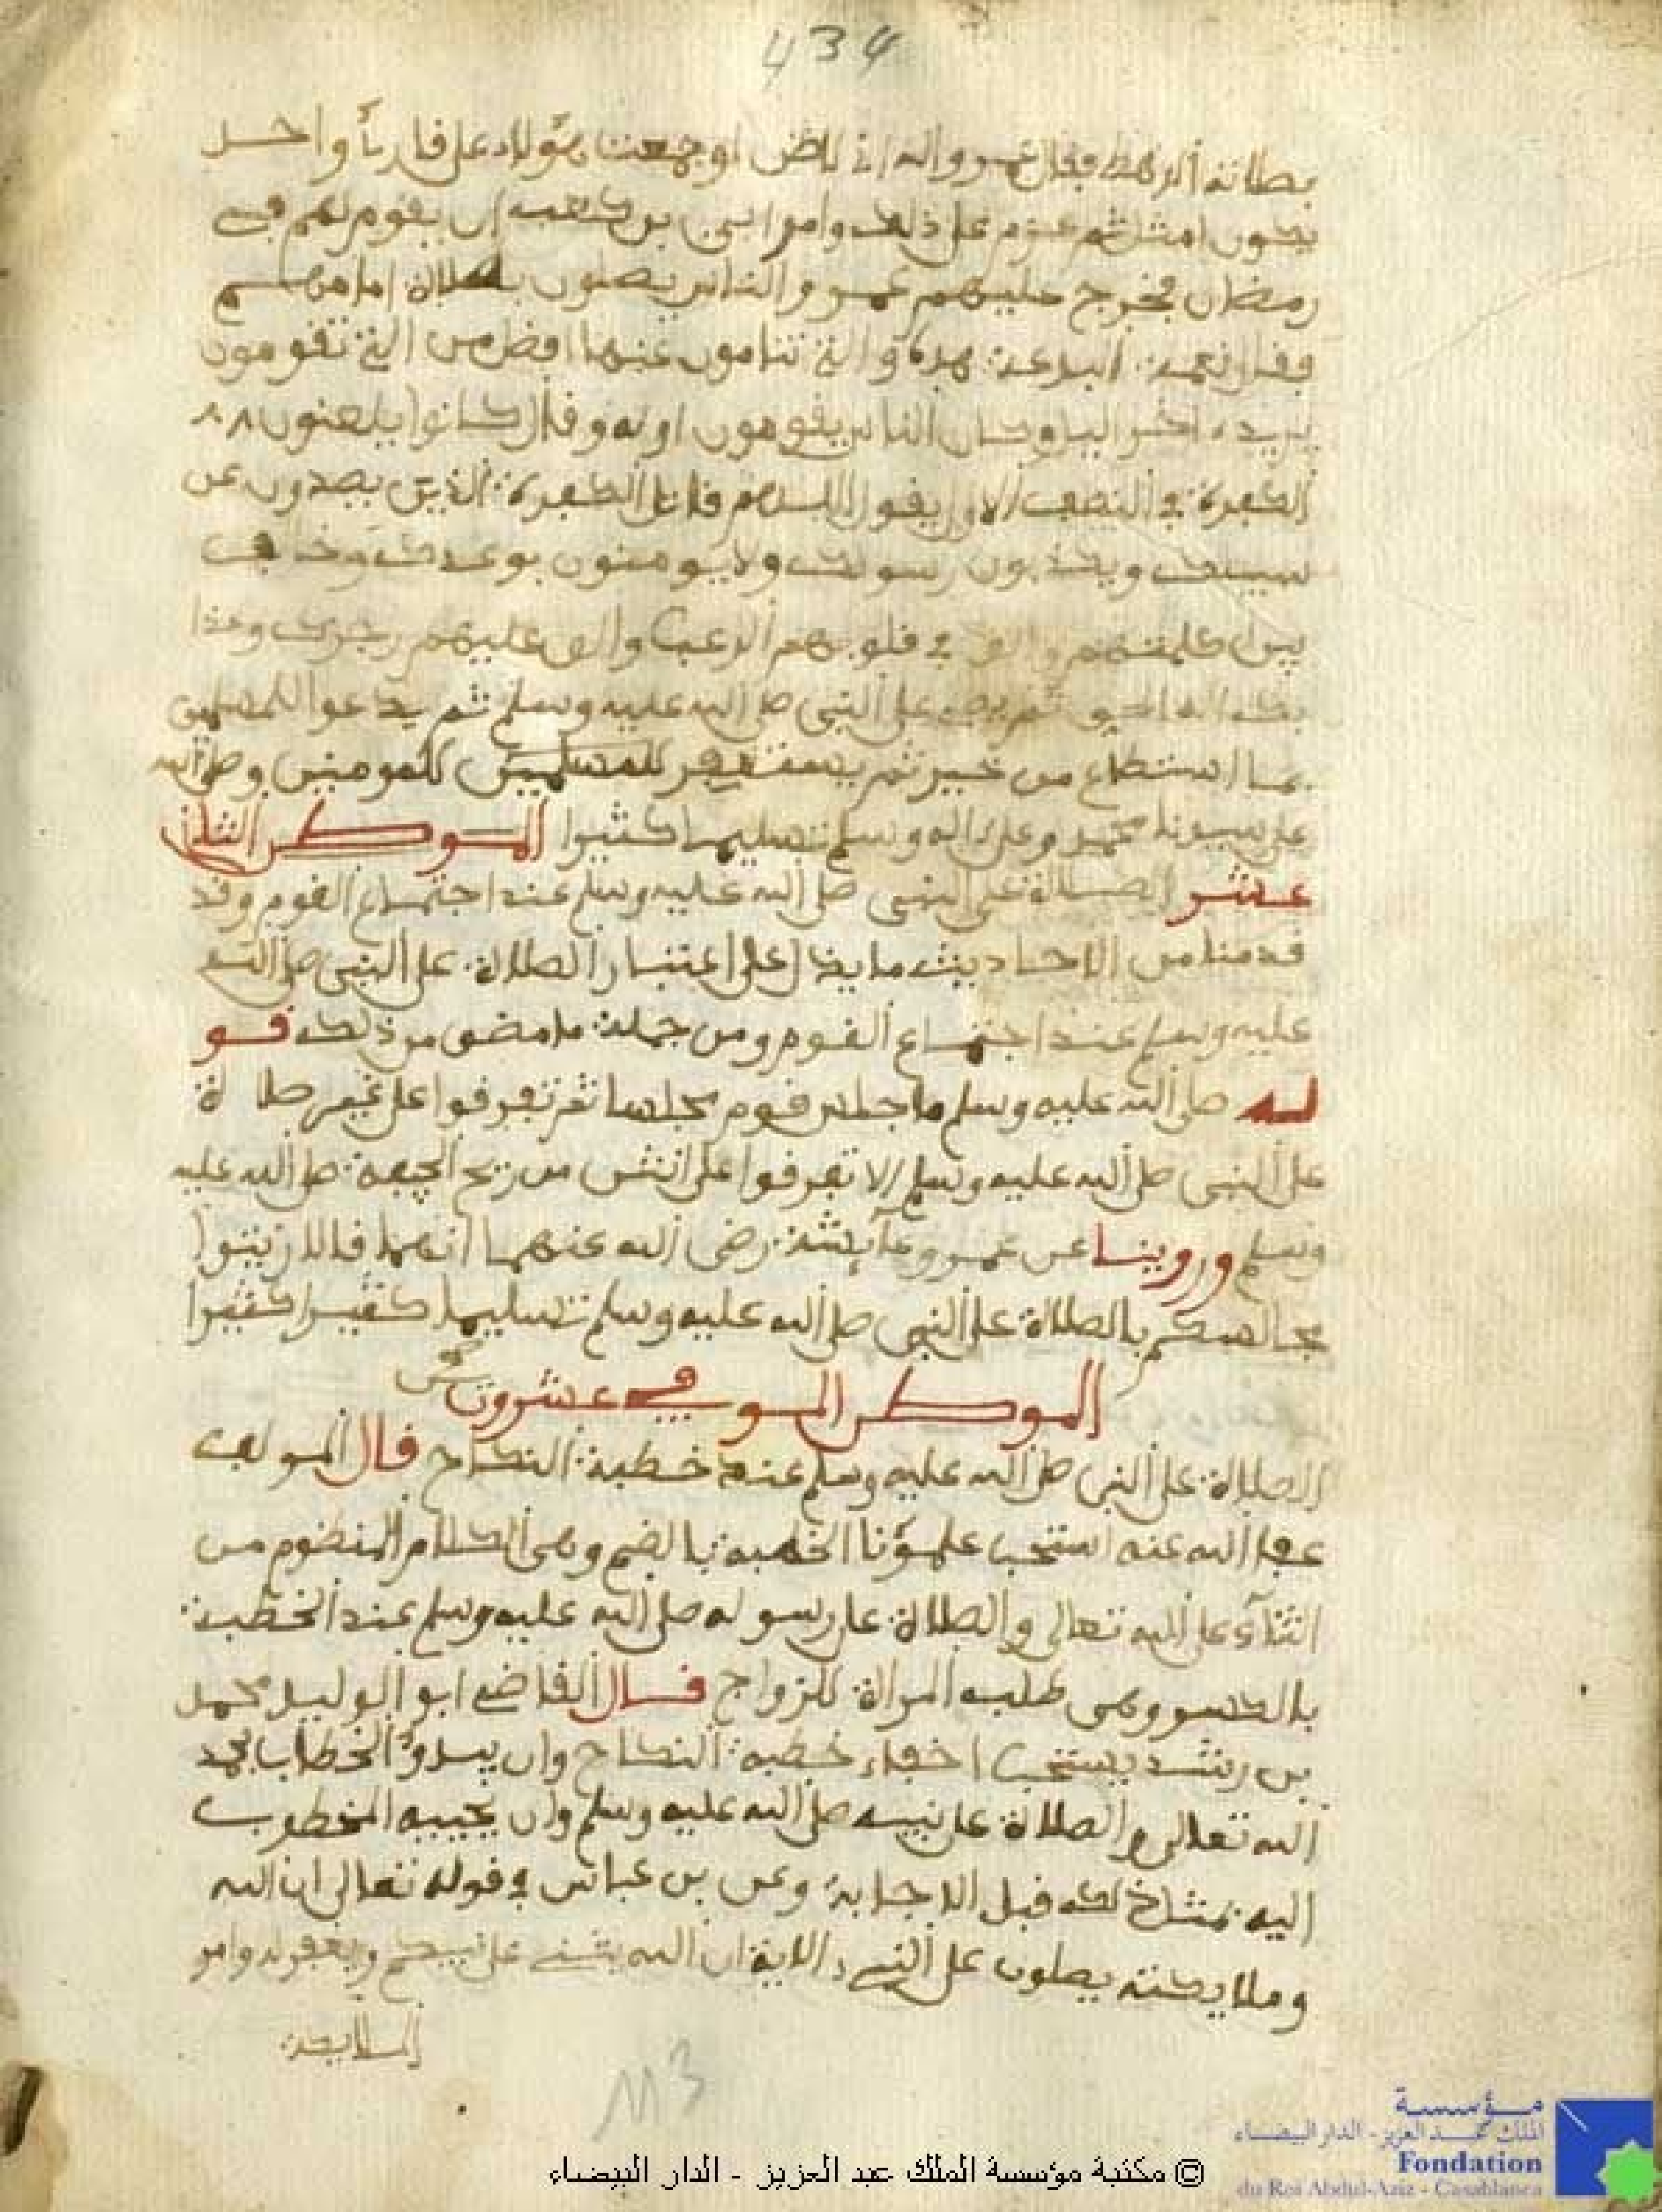 434
بصلاته الرهط فقال عمر والله اني لاظن لو جمعنا هؤلاء على قارئ واحد
يكون امثل ثم عزم على ذلك وامر ابي بن كعب ان يقوم لهم في
رمضان فخرج عليهم عمر والناس يصلون بصلاة امامهم
فقال نعمة البدعة هذه والتي تنامون عنها افضل من التي تقومون
يريد اخر اليل وكان الناس يقومون اوله وقال كانوا يلعنون
الكفرة في النصف الاول يقول اللهم قاتل الكفرة الذين يصدون عن
سبيلك ويكذبون رسولك ولا يومنون بوعدك وخالف
بين كلمتهم والق في قلوبهم الرعب والق عليهم رجزك وعذا
بك اله الحق ثم يصلي على النبي صلى الله عليه وسلم ثم يدعوا للمسلمين
بما استطاع من خير ثم يستغفر للمسلمين للمومنين وصلى الله
على سيدنا محمد وعلى اله وسلم تسليما كثيرا الموطن الثاني
عشر الصلاة على النبي صلى الله عليه وسلم عند اجتماع القوم وقد
قدمنا من الاحاديث ما يدل على اعتبار الصلاة على النبي صلى الله
عليه وسلم عند اجتماع القوم ومن جملة ما مضى من ذلك قو
له صلى الله عليه وسلم ما جلس قوم مجلسا ثم تفرقوا على غير صلا ة
على النبي صلى الله عليه وسلم الا تفرقوا على انتن من ريح الجيفة صلى الله عليه
وسلم وروينا عن عمر وعائشة رضي الله عنهما انهما قالا زينوا
مجالسكم بالصلاة على النبي صلى الله عليه وسلم تسليما كثيرا كثيرا
الموطن الموفي عشرون
الصلاة على النبي صلى الله عليه وسلم عند خطبة النكاح قال المولف
عفا الله عنه استحب علماؤنا الخطبة بالضم وهي الكلام المنظوم من
الثناء على الله تعالى والصلاة على رسوله صلى الله عليه وسلم عند الخطبة
بالكسر وهي طلب المراة للزواج قال القاضي ابو الوليد محمد
بن رشد يستحب اخفاء خطبة النكاح وان يبدؤ الخطاب بحمد
الله تعالى والصلاة على نبيه صلى الله عليه وسلم وان يجيبه المخطوب
اليه بمثل ذلك قبل الاجابة وعن بن عباس في قوله تعالى ان الله
وملايكته يصلون على النبي الاية ان الله يثني على نبيكم ويغفر له وامر
الملايكة
113
© مكتبة مؤسسة الملك عبد العزيز - الدار البيضاء
مؤسسة
الملك عبد العزيز - الدار البيضاء
Fondation
du Roi Abdul-Aziz - Casablanca